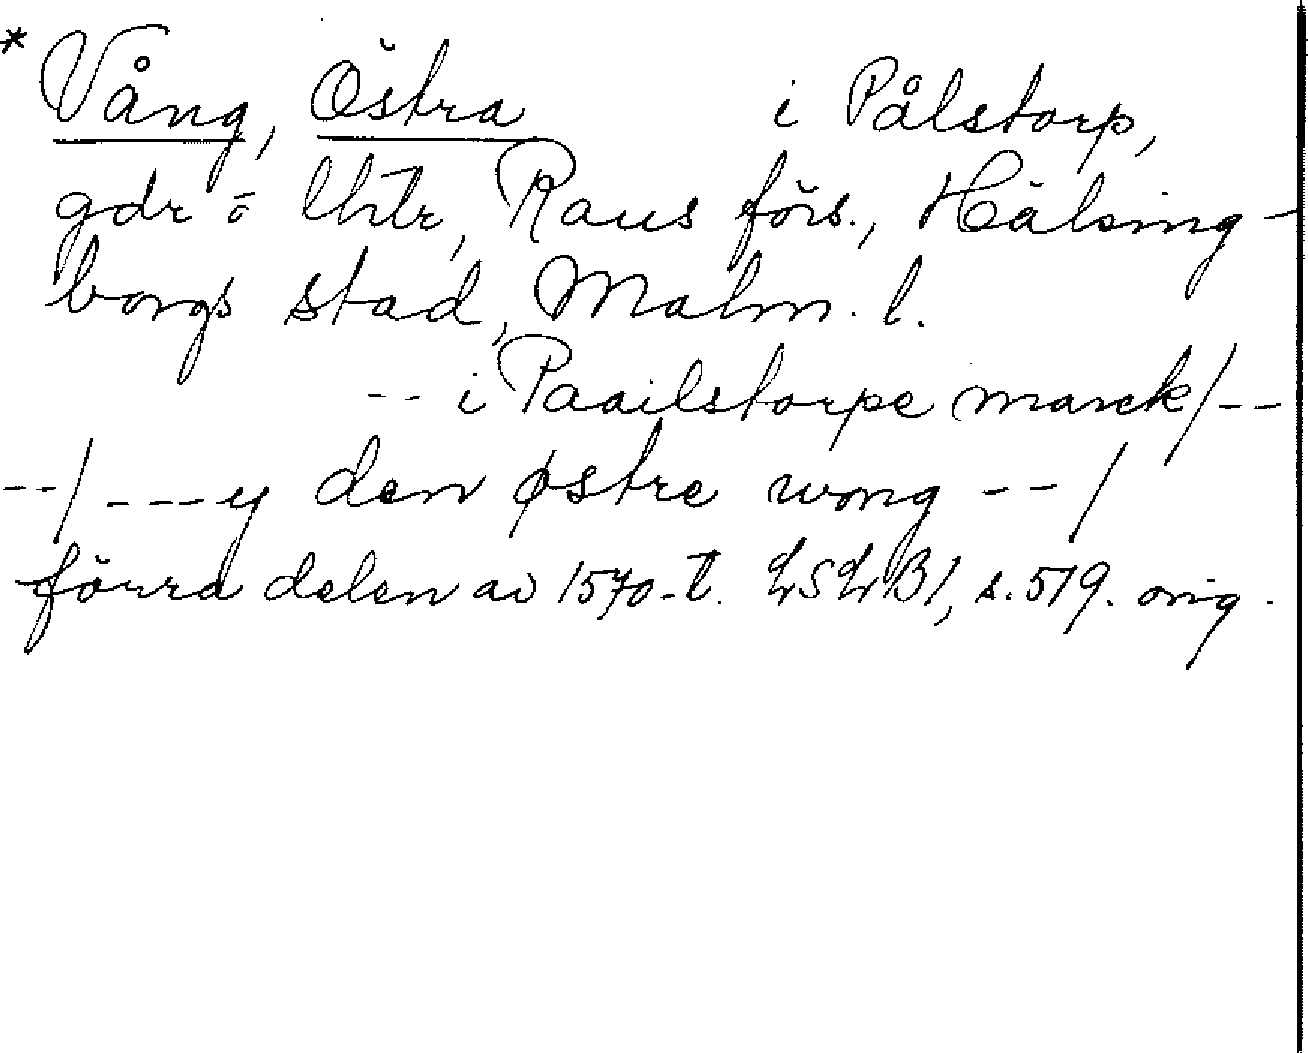 * Vång, Östra i Pålstorp,
gdr o lhtr, Raus förs., Hälsing-
borgs stad, Malm. l.
-- i Paailstorpe marck/--
--/---y den østre wong --/
förra delen av 1570-t. LSLB1, s.519. orig.